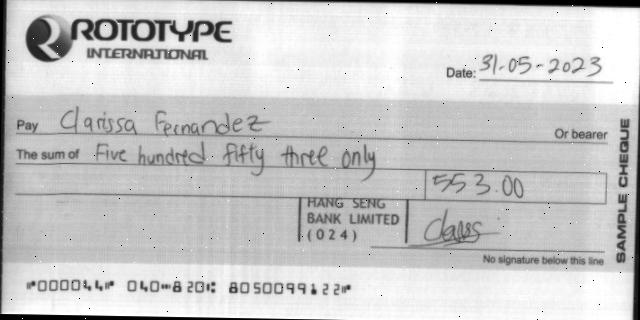 ROTOTYPE
INTERNATIONAL
Date: 31-05-2023
Pay Clarissa Fernandez Or bearer
The sum of Five hundred fifty three only
553.00
HANG SENG
BANK LIMITED
(024)
No signature below this line
SAMPLE CHEQUE
⑈000044⑈ 040⑉820⑆ 8050099122⑈